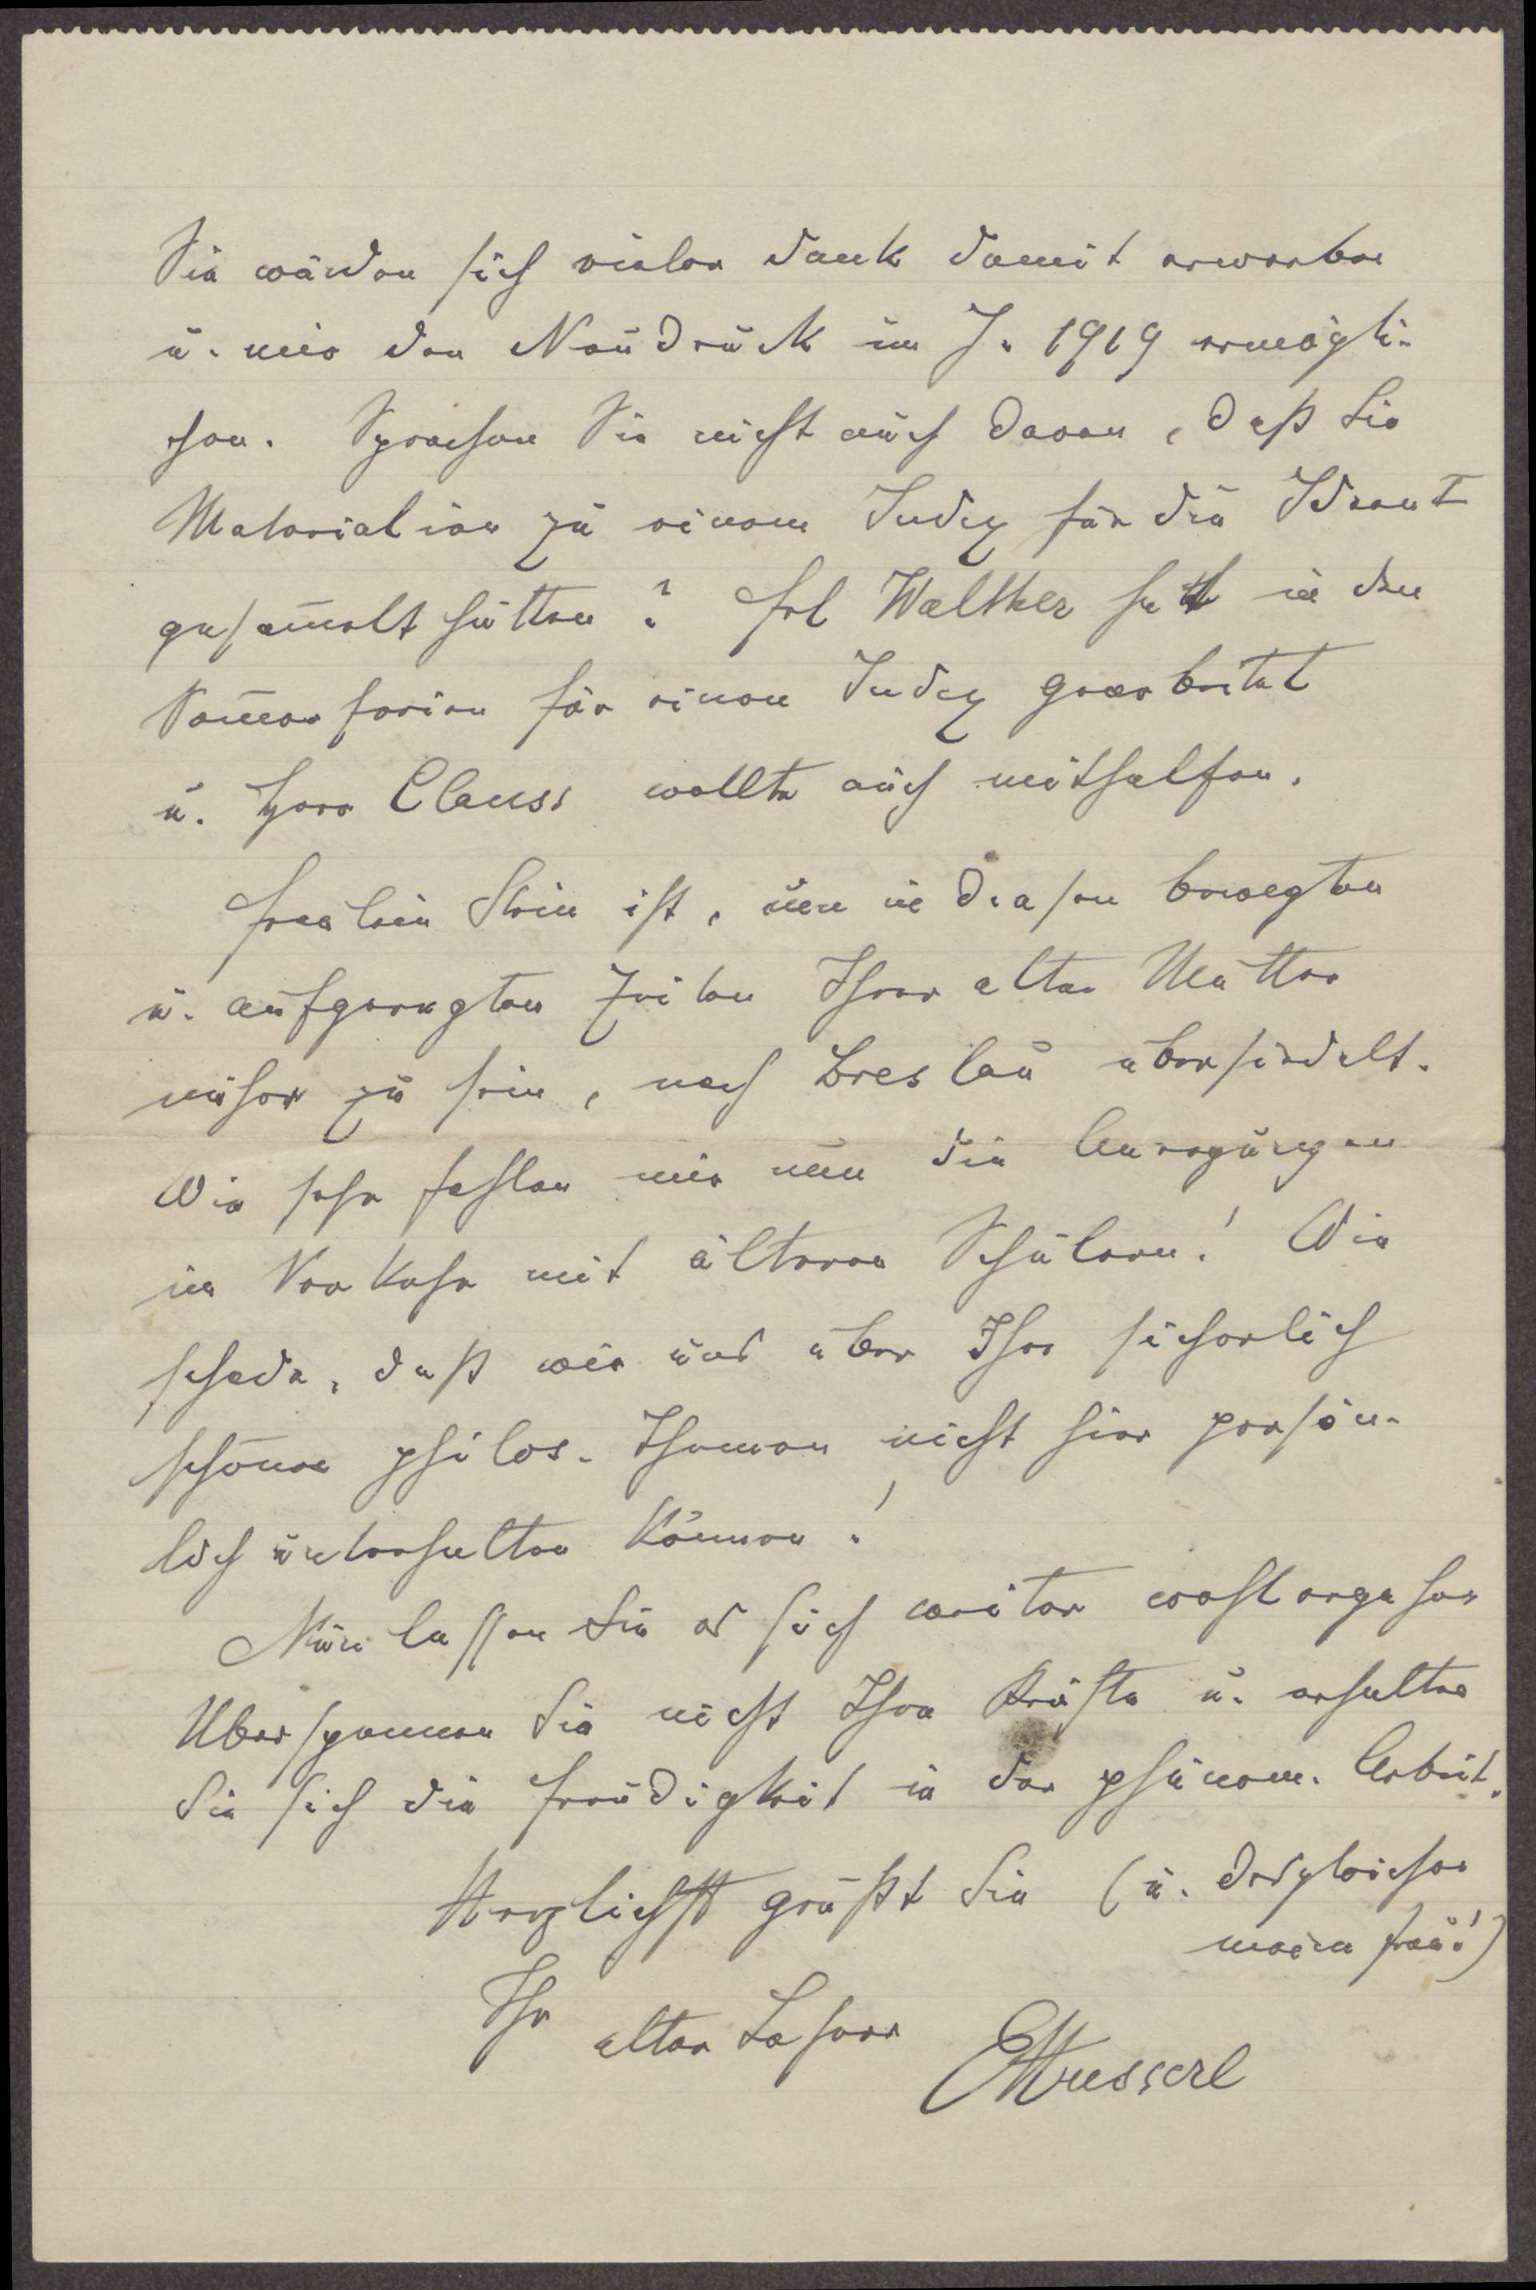 Sie würden sich vielen Dank damit erwerben
u. mir den Neudruck im J. 1919 ermögli-
chen. Sprachen Sie nicht auch davon, daß Sie
Materialien zu einem Index für die Ideen I
gesam̄elt hätten? Frl Walther hat in den
Som̄erferien für einen Index gearbeitet
u. Herr Clauss wollte auch mithelfen.
Fräulein Stein ist, um in diesen bewegten
u. aufgeregten Zeiten Ihrer alten Mutter
näher zu sein, nach Breslau übersiedelt.
Wie sehr fehlen mir nun die Anregungen
im Verkehr mit älteren Schülern! Wie
schade, daß wir uns über Ihre sicherlich
schönen philos. Themen nicht hier persön-
lich unterhalten können!
Nun lassen Sie es sich weiter wohlergehen
Überspannen Sie nicht Ihre Kräfte u. erhalten
Sie sich die Freudigkeit in der phänom. Arbeit.
Herzlichst grüßt Sie (u. desgleichen
meine Frau!)
Ihr
alter Lehrer
EHusserl